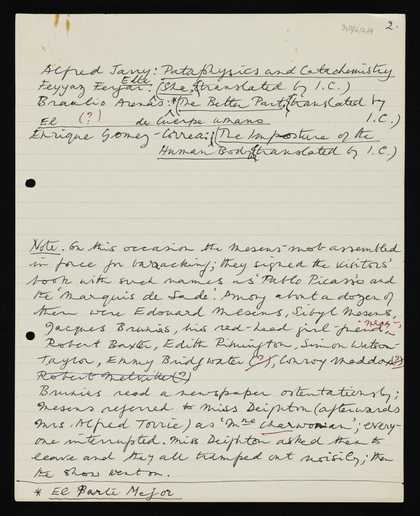 2.
Alfred Jarry: Pataphysics and Catachemistry
Feyyaz Fergar: (The translated by I.C.)
Braulio Arenas:* (The Better Part, translated by
El (?) de Cuerpo umano I.C.)
Enrique Gomez-Correa: (The Imposture of the
Human Body, translated by I.C.)
Note. On this occasion the Mesens mob assembled
in force for barracking; they signed the visitors'
book with such names as 'Pablo Picasso' and
the 'Marquis de Sade'. Among about a dozen of
them were Edouard Mesens, Sybil Mesens,
Jacques Brunius, his red-head girl-friend,
Robert Baxter, Edith Rimington, Simon Watson-
Taylor, Emmy Bridgwater (?), Conroy Maddox(?)
Robert Melville(?)
Brunius read a newspaper ostentatiously;
Mesens referred to Miss Deighton (afterwards
Mrs. Alfred Torrie) as 'Mme Charwoman'; every-
one interrupted. Miss Deighton asked them to
leave and they all tramped out noisily; then
the show went on.
* El Parte Mejor